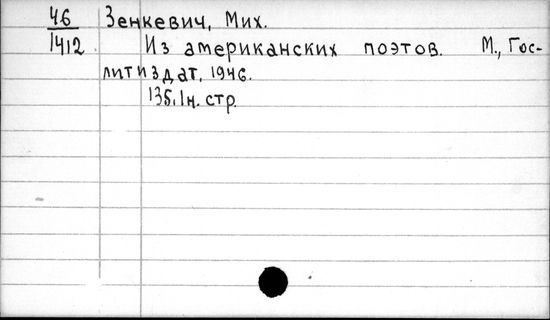 46 Зенкевич, Мих.
1412 Из американских поэтов. М., Гос-
литиздат, 1946.
135,1н. стр.